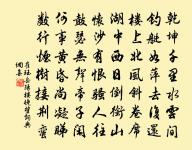 乾坤千里水雲間
釣艇如萍去復還
樓上北風斜卷席
湖中西日倒銜山
懷沙有恨騷人往
鼓瑟無聲帝子閑
何事黃昏尚凝睇
數行煙樹接荊蠻
崔珏岳陽樓晚望詩詞典
網集